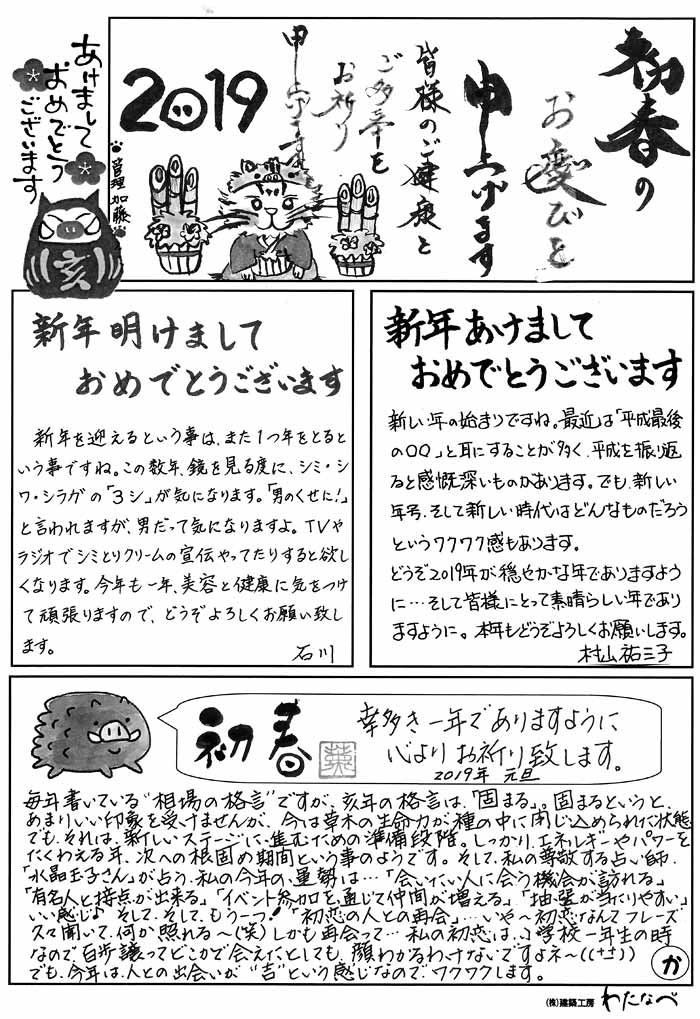 初春の
お慶びを
申し上げます
皆様のご健康と
ご多幸を
お祈り
申し上げます
2019
あけまして
おめでとう
ございます
管理 加藤
亥
新年明けまして
おめでとうございます
新年を迎えるという事は、また1つ年をとると
いう事ですね。この数年、鏡を見る度に、シミ・シ
ワ・シラガの「3シ」が気になります。「男のくせに!」
と言われますが、男だって気になりますよ。TVや
ラジオでシミとりクリームの宣伝やってたりすると欲し
くなります。今年も一年、美容と健康に気をつけ
て頑張りますので、どうぞよろしくお願い致し
ます。
石川
新年あけまして
おめでとうございます
新しい年の始まりですね。最近は「平成最後
の〇〇」と耳にすることが多く、平成を振り返
ると感慨深いものがあります。でも、新しい
年号、そして新しい時代はどんなものだろう
というワクワク感もあります。
どうぞ2019年が穏やかな年でありますよう
に…そして皆様にとって素晴らしい年であり
ますように。本年もどうぞよろしくお願いします。
村山祐三子
初春
幸多き一年でありますように
心よりお祈り致します。
2019年 元旦
毎年書いている“相場の格言”ですが、亥年の格言は、「固まる」。固まるというと、
あまりいい印象を受けませんが、今は草木の生命力が種の中に閉じ込められた状態
でも、それは、新しいステージに進むための準備段階。しっかり、エネルギーやパワーを
たくわえる年、次への根固め期間という事のようです。そして、私の尊敬する占い師、
「水晶玉子さん」が占う、私の今年の運勢は…「会いたい人に会う機会が訪れる」
「有名人と接点が出来る」「イベント参加を通じて仲間が増える」「抽選が当たりやすい」
いい感じ♪ そして、そして、もう一つ!「初恋の人との再会」…いや〜初恋なんてフレーズ
久々聞いて、何か照れる〜(笑)しかも再会って…私の初恋は、小学校一年生の時
なので百歩譲ってどこかで会えたとしても、顔わかるわけないですよネ〜
でも、今年は、人との出会いが“吉”という感じなので、ワクワクします。
か
(株)建築工房 わたなべ